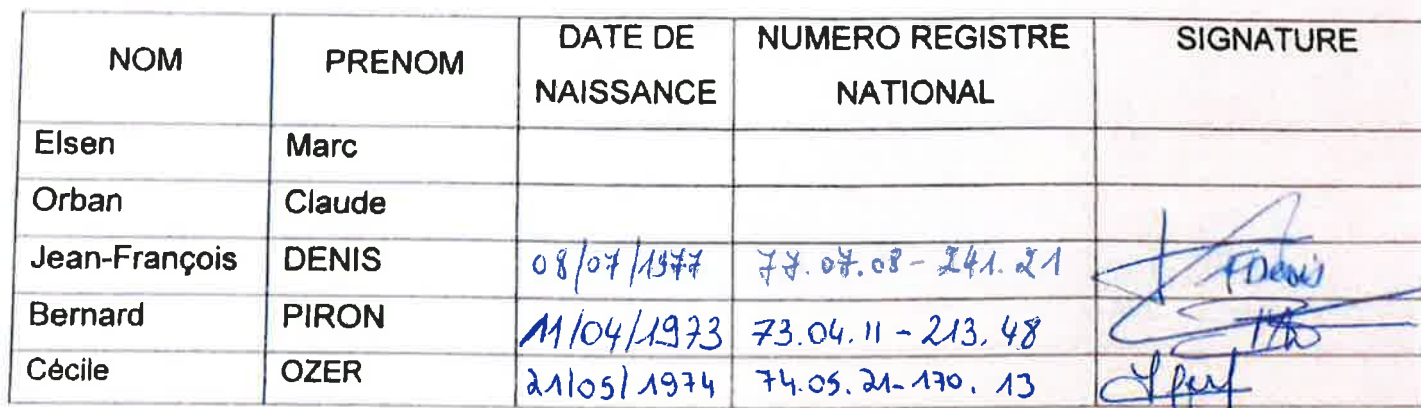 NOM PRENOM DATE DE NAISSANCE NUMERO REGISTRE NATIONAL SIGNATURE
Elsen Marc
Orban Claude
Jean-François DENIS 08/07/1977 77.07.08-241.21
Bernard PIRON 11/04/1973 73.04.11-213.48
Cécile OZER 21/05/1974 74.05.21-170.13